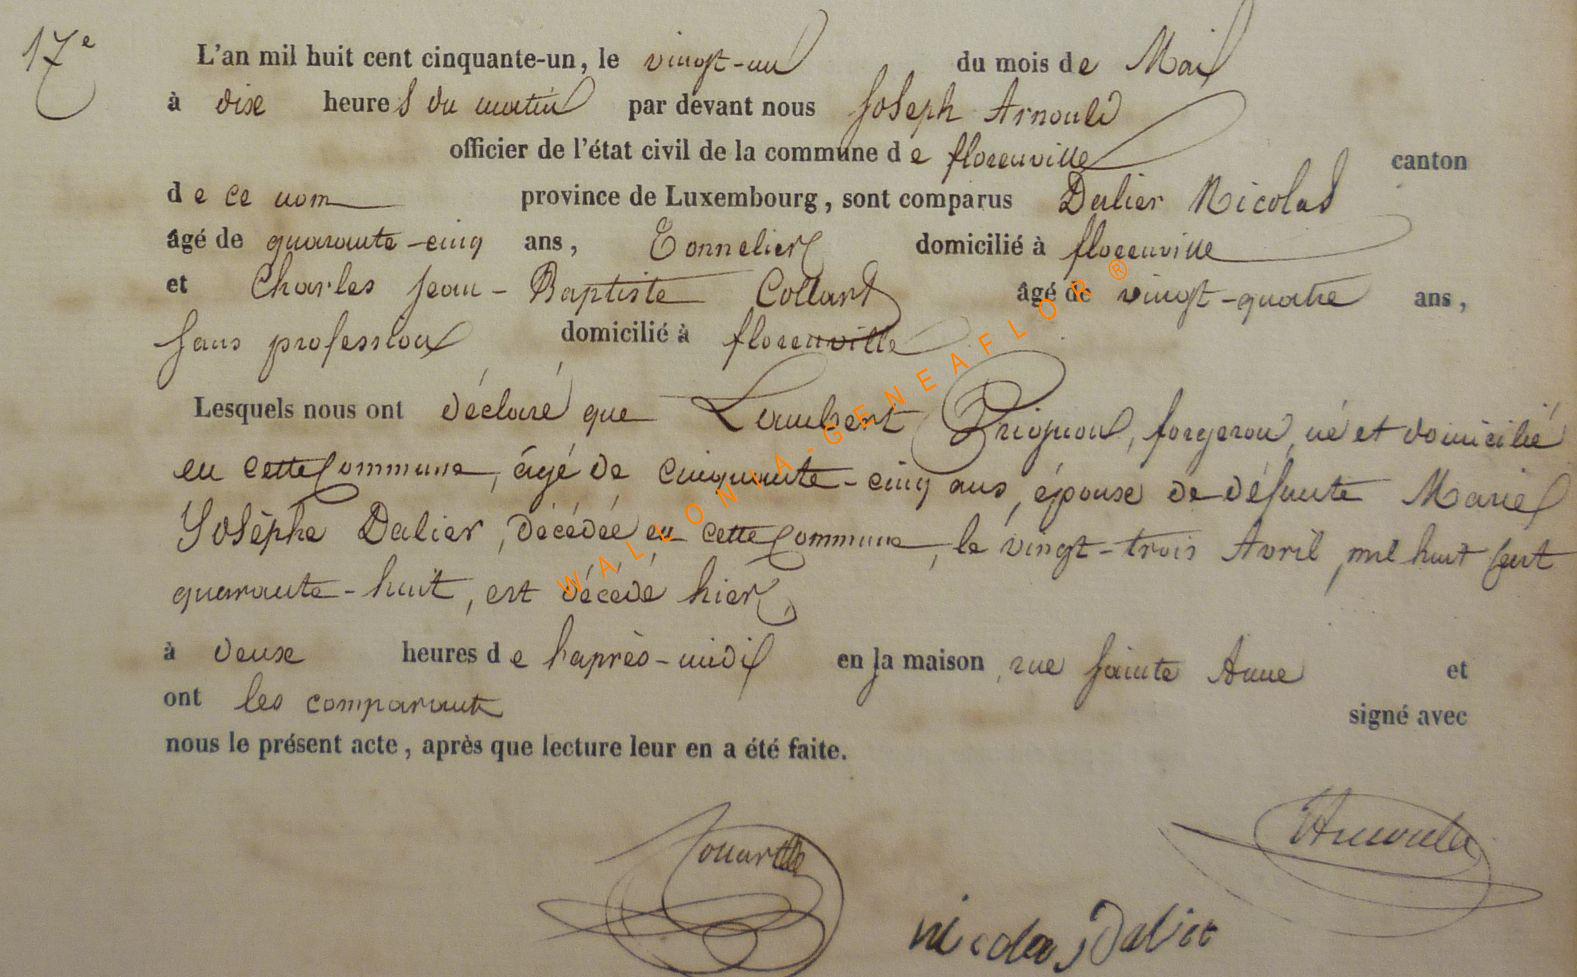 17e
L'an mil huit cent cinquante-un, le vingt-un du mois de Mai
à dix heures du matin par devant nous Joseph Arnould
officier de l'état civil de la commune de florenville canton
de ce nom province de Luxembourg, sont comparus Dalier Nicolas
âgé de quarante-cinq ans, Tonnelier domicilié à florenville
et Charles Jean-Baptiste Collart âgé de vingt-quatre ans,
sans profession domicilié à florenville
Lesquels nous ont déclaré que Lambert Brignon, forgeron, né et domicilié
en cette Commune, âgé de cinquante-cinq ans, époux de défunte Marie
Josèphe Dalier, décédée en cette Commune, le vingt-trois Avril, mil huit cent
quarante-huit, est décédé hier,
à deux heures de l'après-midi en sa maison, rue Sainte Anne et
ont les comparants signé avec
nous le présent acte, après que lecture leur en a été faite.
JArnould
nicolas Dalier
WALLONIA.GENEAFLOR®